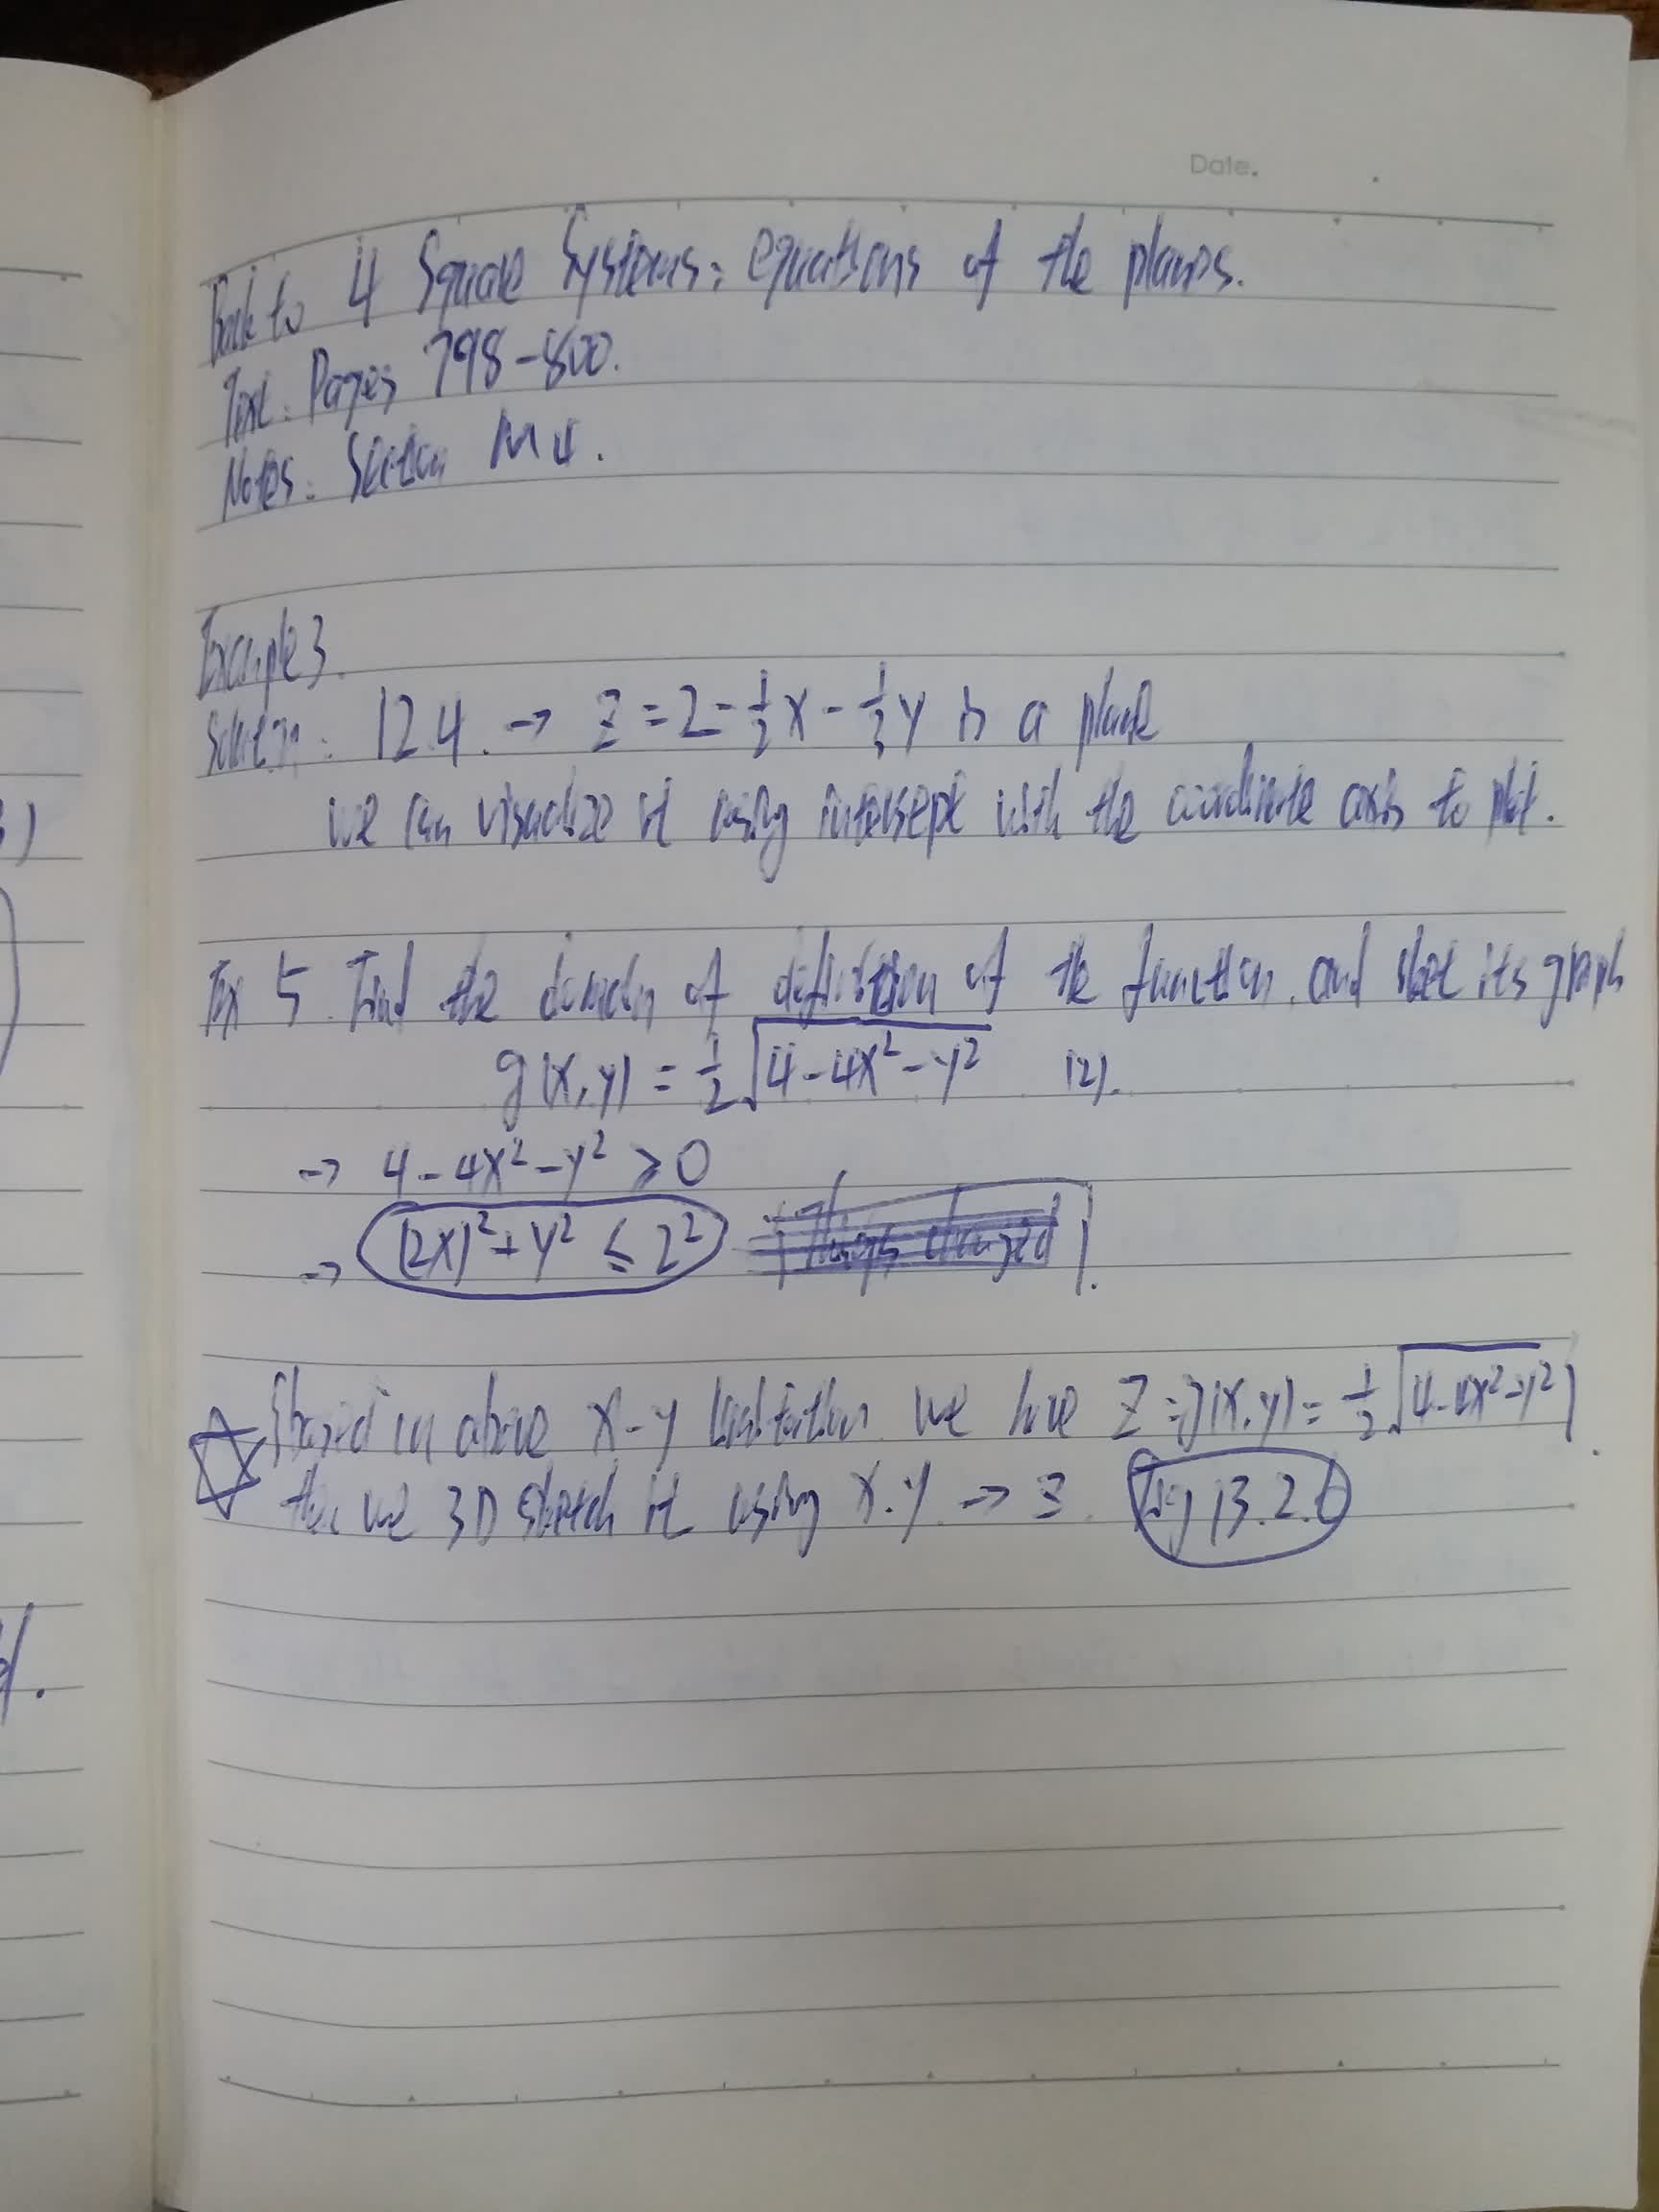 Date.
Back to 4 Square Systems: equations of the planes.
Text: Pages 798-800.
Notes: Section M4.
Example 3.
Solution: 12.4. → z = 2 - 1/2 x - 1/3 y is a plane
we can visualize it using intersept with the coordinate axis to plot.
Ex 5. Find the domain of definition of the function. and sket its graph
g(x,y) = 1/2 √(4-4x²-y²) (2).
→ 4-4x²-y² ≥ 0
→ (2x)² + y² ≤ 2²
based on above x-y limitation we have z = g(x,y) = 1/2 √(4-4x²-y²)
then we 3D sketch it using x.y → z. Fig 13.2.6
3)
d.